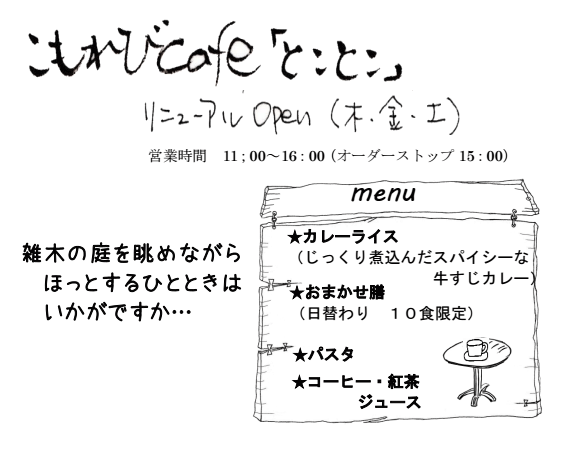 こもれびcafe「とことこ」
リニューアル Open（木・金・土）
営業時間　11 ; 00～16 : 00（オーダーストップ 15 : 00）
雑木の庭を眺めながら
ほっとするひとときは
いかがですか…
menu
★カレーライス
（じっくり煮込んだスパイシーな
牛すじカレー）
★おまかせ膳
（日替わり　１０食限定）
★パスタ
★コーヒー・紅茶
ジュース